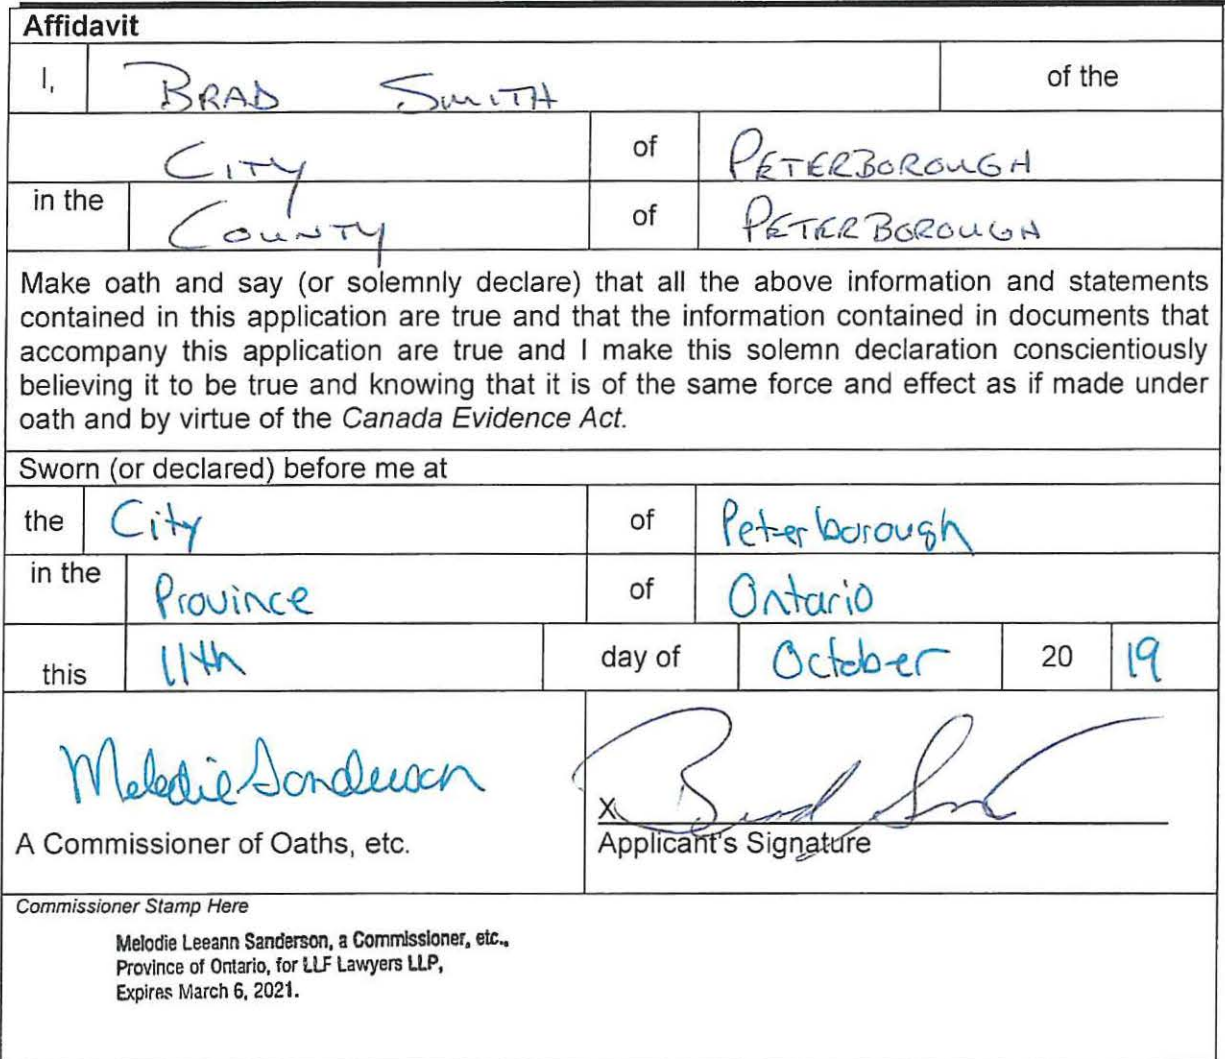 Affidavit
I, BRAD SMITH of the
CITY of PETERBOROUGH
in the COUNTY of PETERBOROUGH
Make oath and say (or solemnly declare) that all the above information and statements
contained in this application are true and that the information contained in documents that
accompany this application are true and I make this solemn declaration conscientiously
believing it to be true and knowing that it is of the same force and effect as if made under
oath and by virtue of the Canada Evidence Act.
Sworn (or declared) before me at
the City of Peterborough
in the Province of Ontario
this 11th day of October 20 19
Melodie Sanderson
X Brad Smith
A Commissioner of Oaths, etc. Applicant's Signature
Commissioner Stamp Here
Melodie Leeann Sanderson, a Commissioner, etc.,
Province of Ontario, for LLF Lawyers LLP,
Expires March 6, 2021.